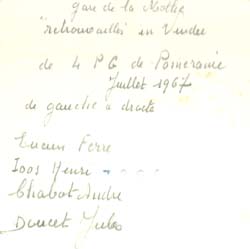 gare de la Mothe
"retrouvailles" en Vendée
de 4 PG de Pomeranie
Juillet 1967
de gauche à droite
Lucien Ferre
Ioos Henri - - - -
Chabot Andre
Doucet Jules